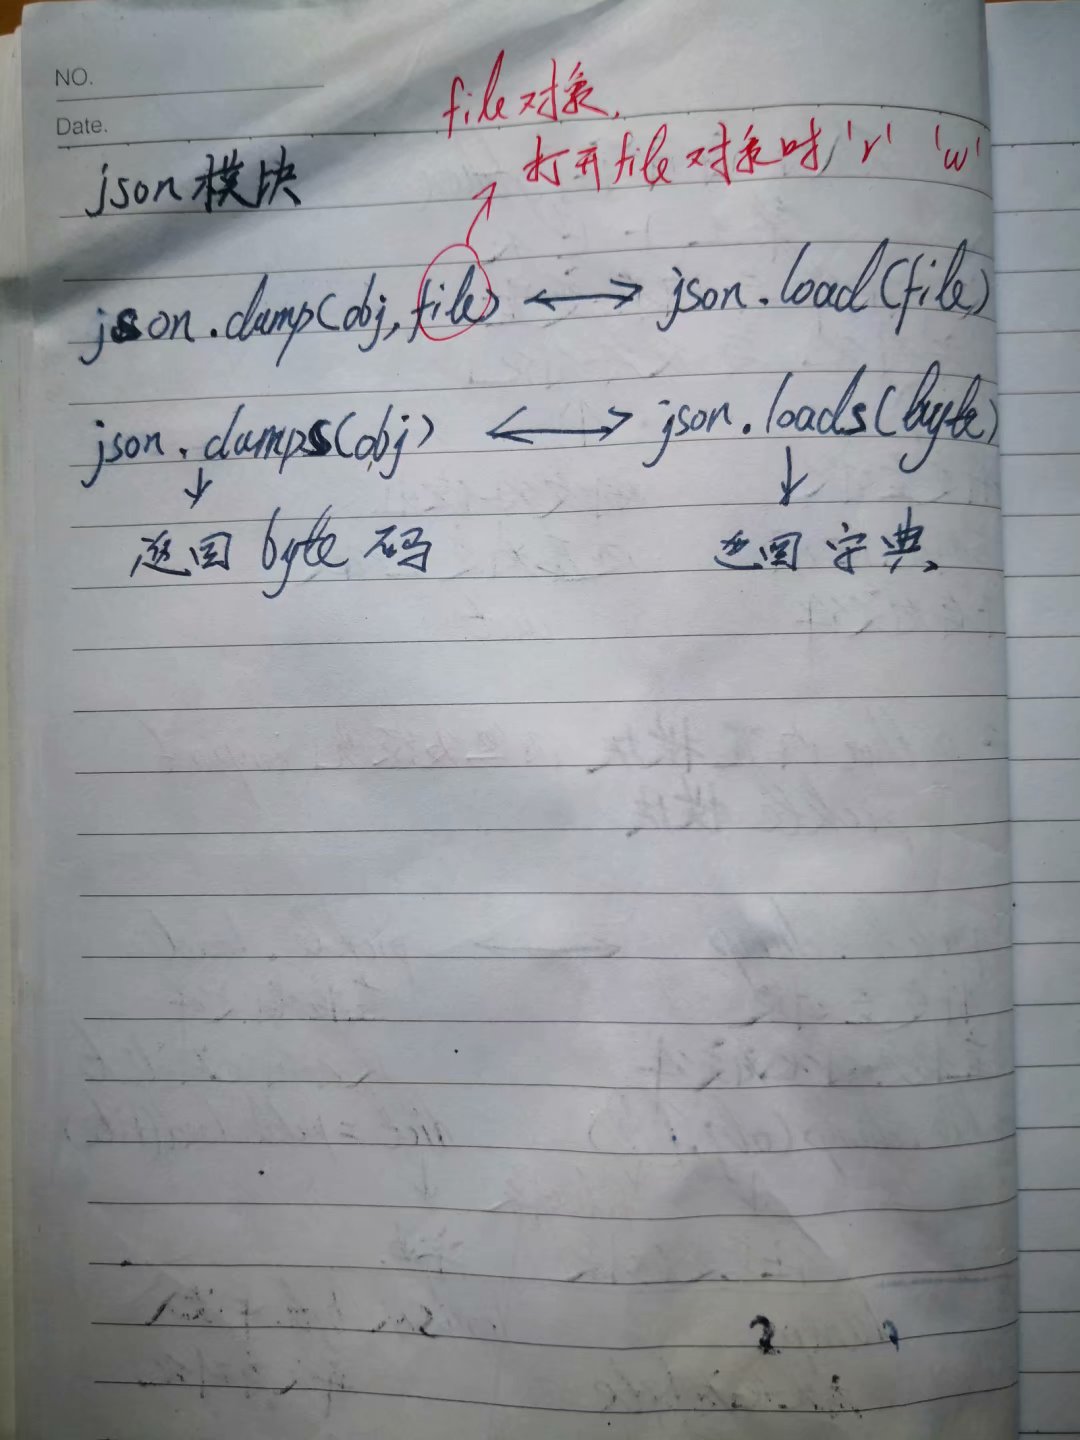 NO.
Date.
file对象.
打开file对象时,'r' 'w'
json模块
json.dump(obj,file) ⟷ json.load(file)
json.dumps(obj) ⟷ json.loads(byte)
↓ ↓
返回 byte 码 返回 字典、